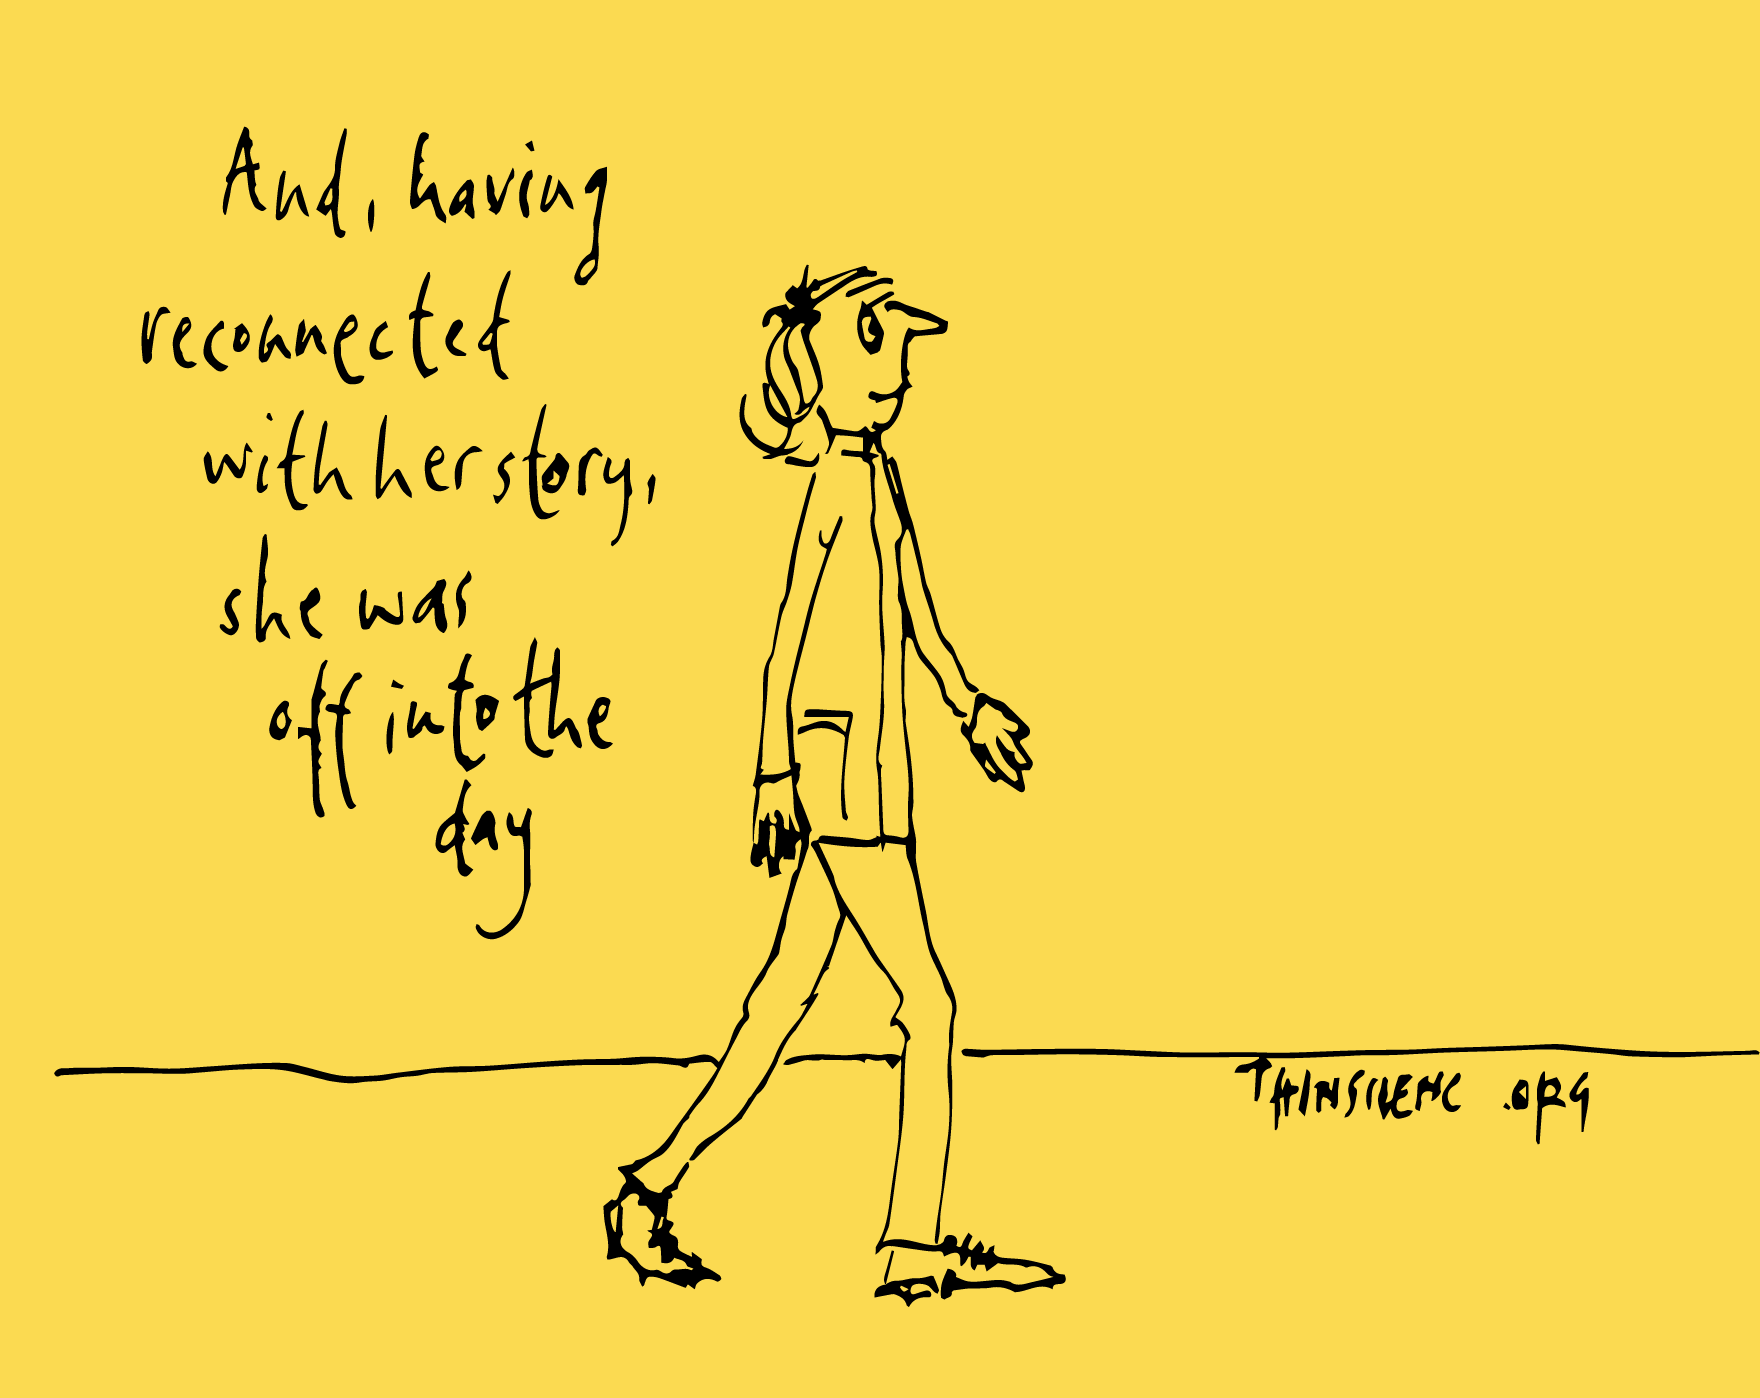 And, having
reconnected
with her story,
she was
off into the
day
THINSILENC.ORG